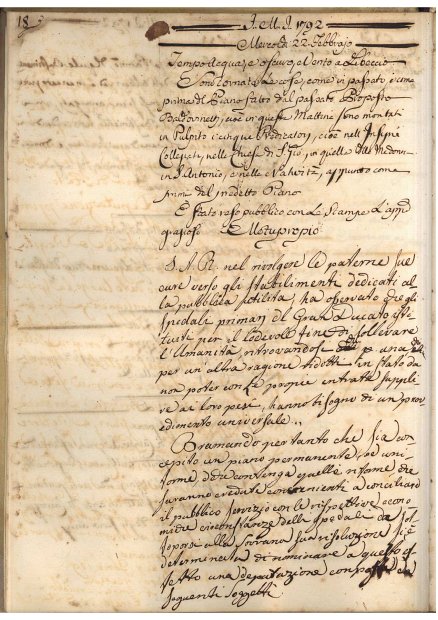 18
A M. d. 1792
Mercoldì 22 Febbrajo
Tempo d'acqua, e oscuro, Vento a Libeccio
E sono tornate le cose, come in passato, e come
prima del Piano fatto dal passato Proposto
Baldovinetti, cioè in questa Mattina sono montati
in Pulpito i cinque Predicatori, cioè nell' Insigne
Collegiata, nelle Chiese di S. Gio, in quella della Madonna
in S. Antonio, e nella Natività, appunto come
prima del predetto Piano
E' stato reso pubblico con le Stampe l'appie
Motuproprio
S. A. R. nel rivolgere le paterne sue
cure verso gli stabilimenti dedicati al
la pubblica utilità, ha osservato che gli
Spedali primari del Gran Ducato isti
tuiti per il lodevole fine di sollevare
l'Umanità, ritrovandosi p una
per un'altra ragione ridotti in stato da
non poter con le proprie entrate supplire
ai loro pesi, hanno bisogno di un prov
vedimento universale..
Bramando pertanto che sia con
cepito un piano permanente, ed uni
forme, dove contenga quelle riforme che
saranno credute convenienti a conciliare
il pubblico servizio con le rispettive econo
miche circostanze delli Spedali da sot
toporsi alla Sovrana sua risoluzione si è
determinata di nominare a questo ef
fetto una deputazione composta dei
seguenti Soggetti